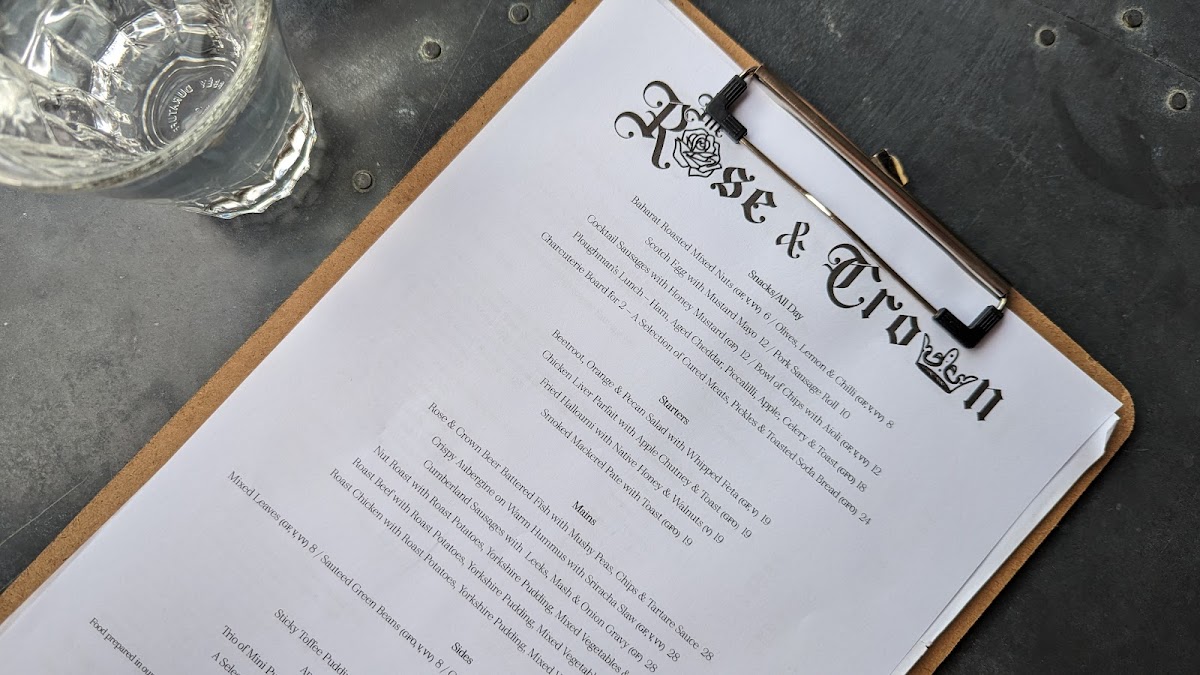 The
Rose & Crown
Snacks/All Day
Baharat Roasted Mixed Nuts (GF, V, VV) 6 / Olives, Lemon & Chilli (GF, V, VV) 8
Scotch Egg with Mustard Mayo 12 / Pork Sausage Roll 10
Cocktail Sausages with Honey Mustard (GF) 12 / Bowl of Chips with Aioli (GF, V, VV) 12
Ploughman's Lunch – Ham, Aged Cheddar, Piccalilli, Apple, Celery & Toast (GFO) 18
Charcuterie Board for 2 – A Selection of Cured Meats, Pickles & Toasted Soda Bread (GFO) 24
Starters
Beetroot, Orange & Pecan Salad with Whipped Feta (GF, V) 19
Chicken Liver Parfait with Apple Chutney & Toast (GFO) 19
Fried Halloumi with Native Honey & Walnuts (V) 19
Smoked Mackerel Pate with Toast (GFO) 19
Mains
Rose & Crown Beer Battered Fish with Mushy Peas, Chips & Tartare Sauce 28
Crispy Aubergine on Warm Hummus with Sriracha Slaw (GF, V, VV) 28
Cumberland Sausages with Leeks, Mash & Onion Gravy (GF) 28
Nut Roast with Roast Potatoes, Yorkshire Pudding, Mixed Vegetables &
Roast Beef with Roast Potatoes, Yorkshire Pudding, Mixed Vegetabl
Roast Chicken with Roast Potatoes, Yorkshire Pudding, Mixed
Sides
Mixed Leaves (GF, V, VV) 8 / Sauteed Green Beans (GFO, V, VV) 8 /
Sticky Toffee Puddi
Trio of Mini P
A Selec
Food prepared in our
DURATUR